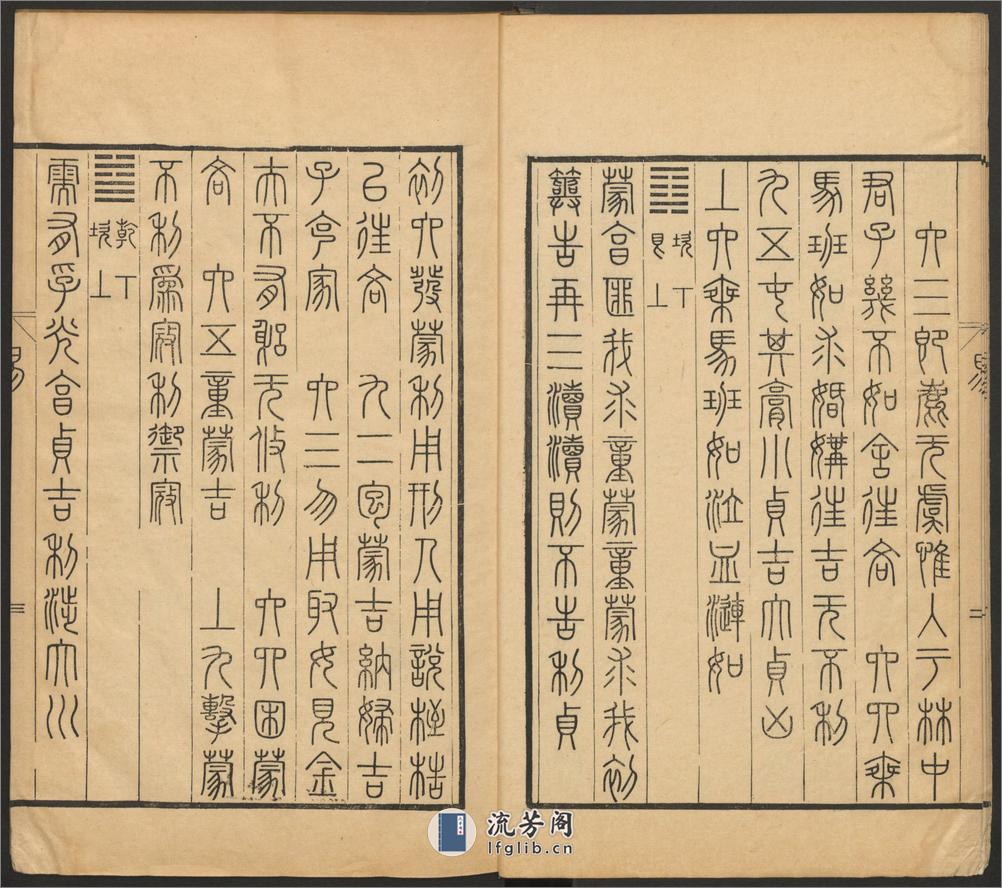 六三即鹿无虞惟入于林中
君子幾不如舍往吝　六四乘
馬班如求婚媾往吉无不利
九五屯其膏小貞吉大貞凶
上六乘馬班如泣血漣如
䷃ 坎下艮上
蒙亨匪我求童蒙童蒙求我初
筮告再三瀆瀆則不告利貞
易 二
初六發蒙利用刑人用說桎梏
以往吝　九二包蒙吉納婦吉
子克家　六三勿用取女見金
夫不有躬无攸利　六四困蒙
吝　六五童蒙吉　上九擊蒙
不利爲寇利禦寇
䷄ 乾下坎上
需有孚光亨貞吉利涉大川
易 三
流芳阁
lfglib.cn